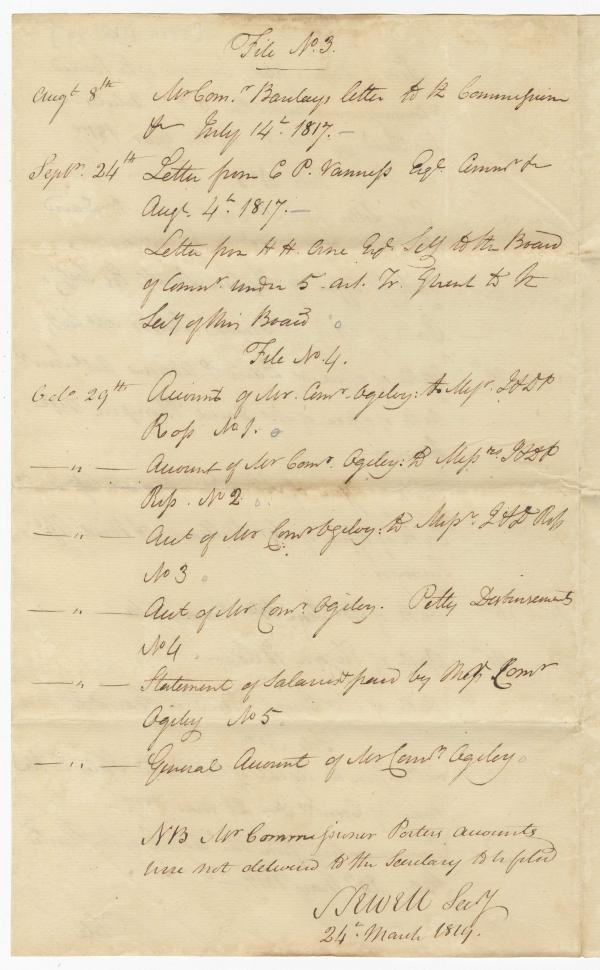 File No. 3.
Augt 8th Mr Comr. Barclays letter to the Commission
for July 14th 1817.—
Septbr. 24th Letter from C P. Vanness Esqr. Commr for
Augt. 4th 1817.—
Letter from H H. Orne Esqr Secy to the Board
of Commrs under 5 art. Tr. Ghent to the
Secy of this Board
File No. 4.
Octo. 29th Account of Mr. Comr. Ogilvy: to Messrs. J & D P
Ross No 1.
— " — Account of Mr Comr. Ogilvy: to Messrs J & D P
Ross. No 2
— " — Acct of Mr Comr Ogilvy: to Messrs. J & D Ross
No 3
— " — Acct of Mr Comr. Ogilvy. Petty Disbursements
No 4
— " — Statement of Salaries paid by Comr
Ogilvy No 5
— " — General Account of Mr Comr Ogilvy
NB Mr Commissioner Porters accounts
were not delivered to the Secretary to be filed
S Sewell Secy
24th March 1819.